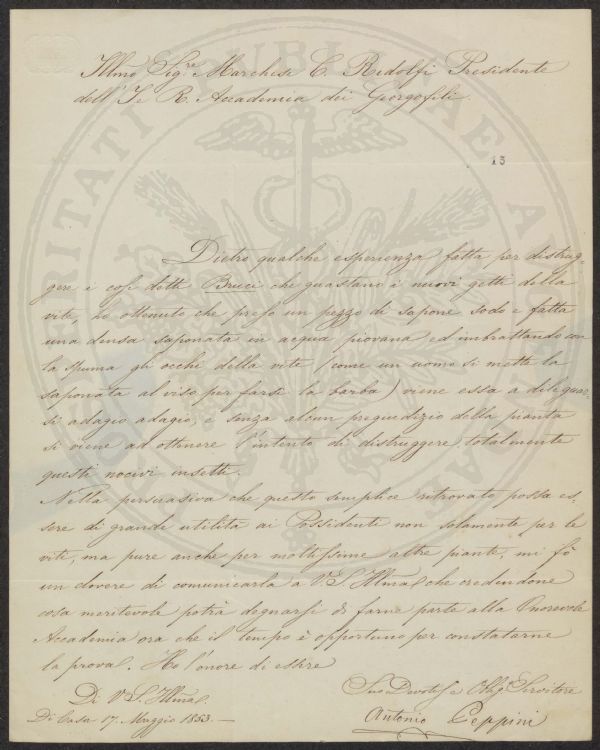 Illmo Sigre Marchese C. Ridolfi Presidente
dell' I. e R. Accademia dei Georgofili.
13
Dietro qualche esperienza fatta per distrug-
gere i così detti Bruci che guastano i nuovi getti della
vite, ho ottenuto che preso un pezzo di sapone sodo e fatta
una densa saponata in acqua piovana ed imbrattando con
la spuma gli occhi della vite (come un uomo si mette la
saponata al viso per farsi la barba) viene essa a dileguar-
si adagio adagio, e senza alcun pregiudizio della pianta
si viene ad ottenere l'intento di distruggere totalmente
questi nocivi insetti.
Nella persuasiva che questo semplice ritrovato possa es-
sere di grande utilità ai Possidenti non solamente per le
viti, ma pure anche per moltissime altre piante, mi fò
un dovere di comunicarla a V. S. Illma che credendone
cosa meritevole potrà degnarsi di farne parte alla Onorevole
Accademia ora che il tempo è opportuno per constatarne
la prova. Ho l'onore di essere
Di V. S. Illma
Suo Devotiss. e Obbg. Servitore
Di Casa 17. Maggio 1853.—
Antonio Peppini